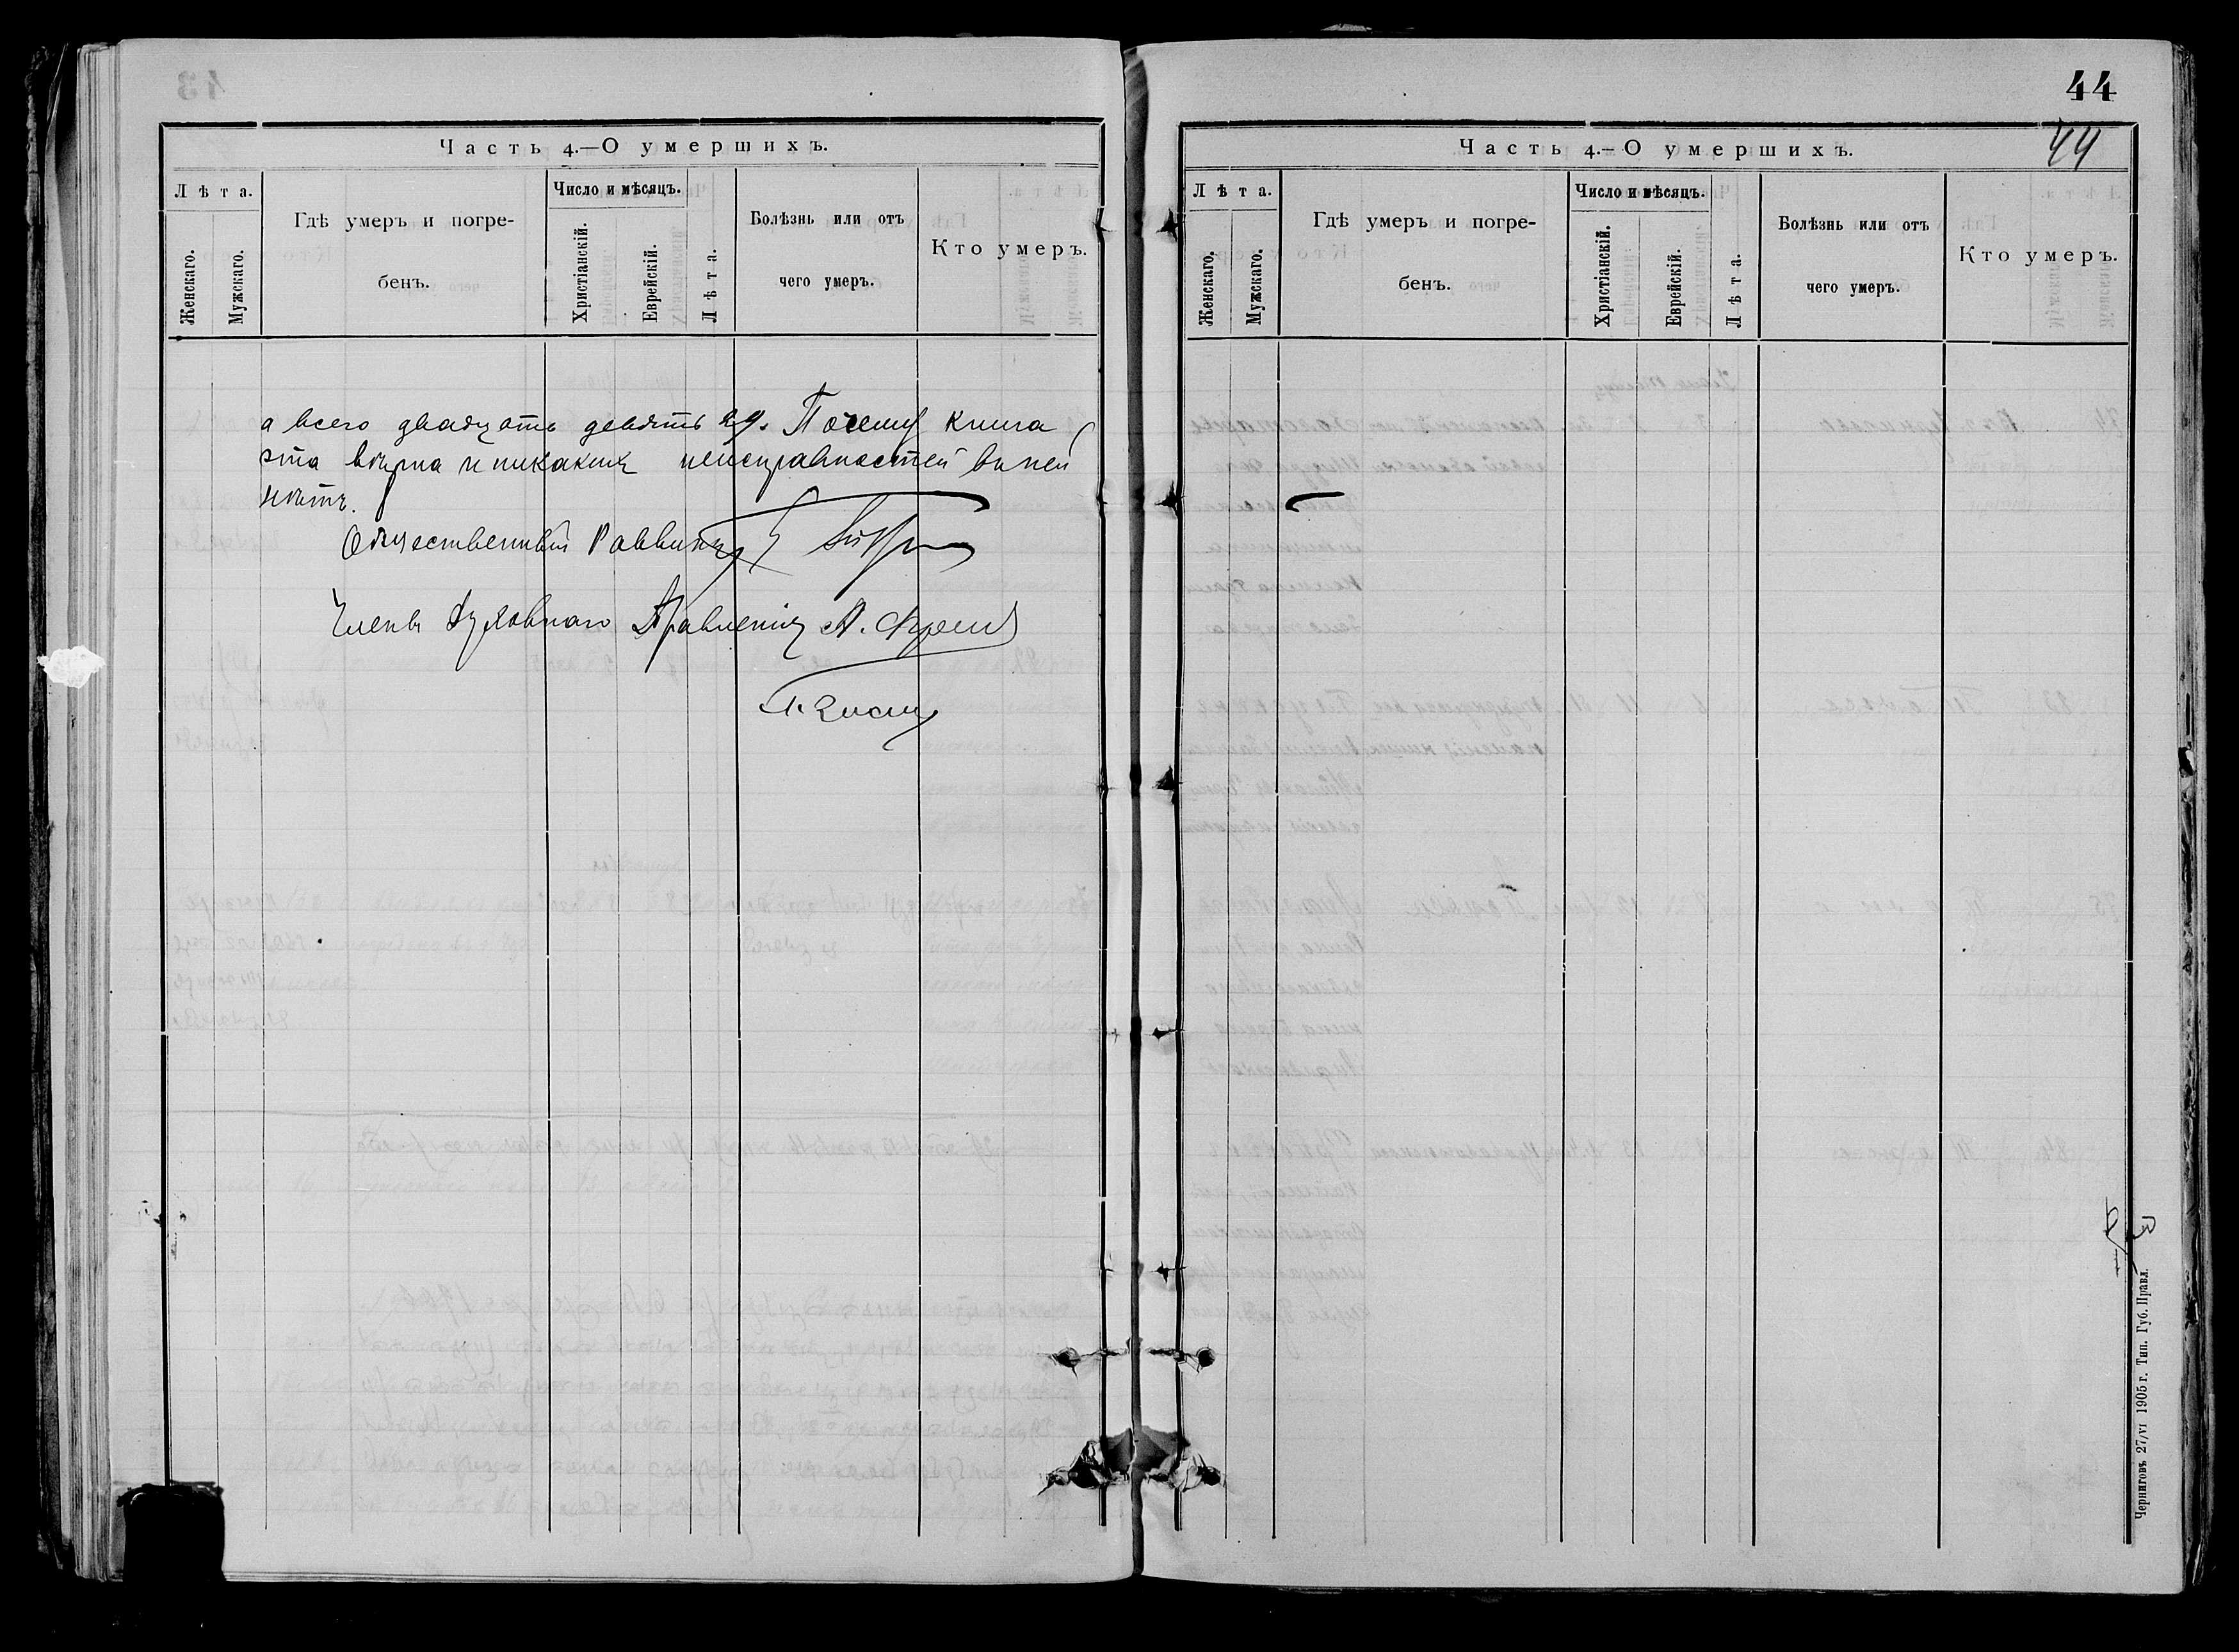 Часть 4.—О умершихъ.
Лѣта.
Женскаго.
Мужскаго.
Гдѣ умеръ и погре-
бенъ.
Число и мѣсяцъ.
Христіанскій.
Еврейскій.
Лѣта.
Болѣзнь или отъ
чего умеръ.
Кто умеръ.
а всего двадцать девять 29. Почему книга
эта вѣрна и никакихъ неисправностей въ ней
нѣтъ.
Общественный Раввинъ
Члены Духовнаго Правленія А.
44
44
Часть 4.—О умершихъ.
Лѣта.
Женскаго.
Мужскаго.
Гдѣ умеръ и погре-
бенъ.
Число и мѣсяцъ.
Христіанскій.
Еврейскій.
Лѣта.
Болѣзнь или отъ
чего умеръ.
Кто умеръ.
Черниговъ 27/VI 1905 г. Тип. Губ. Правл.